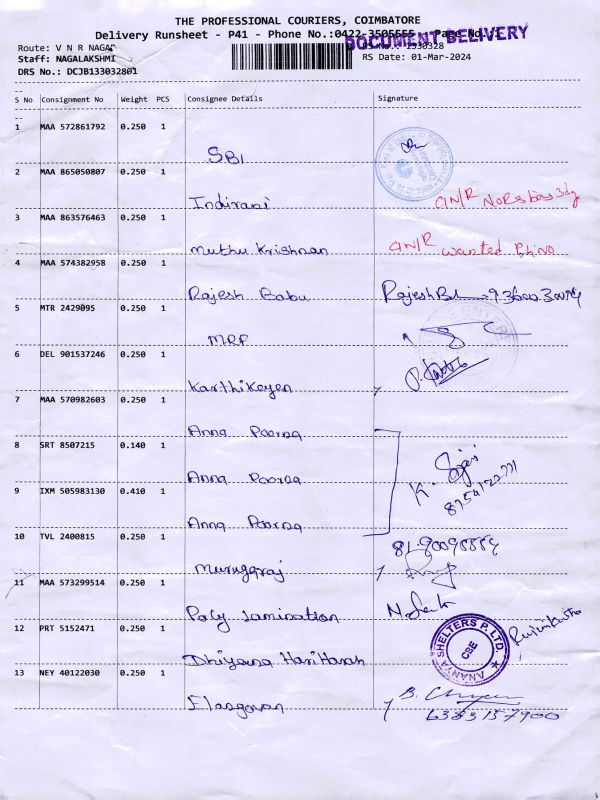 THE PROFESSIONAL COURIERS, COIMBATORE
Delivery Runsheet - P41 - Phone No.:0422-3505555 Page No.:
DOCUMENT DELIVERY
Route: V N R NAGAR 1330328
Staff: NAGALAKSHMI RS Date: 01-Mar-2024
DRS No.: DCJB133032801
S No Consignment No Weight PCS Consignee Details Signature
1 MAA 572861792 0.250 1
SBI
2 MAA 865050807 0.250 1
Indirani
3 MAA 863576463 0.250 1
Muthu Krishnan wanted
4 MAA 574382958 0.250 1
Rajesh Babu
5 MTR 2429095 0.250 1
MRF
6 DEL 901537246 0.250 1
Karthikeyen
7 MAA 570982603 0.250 1
Anna Poorna
8 SRT 8507215 0.140 1
Anna Poorna
9 IXM 505983130 0.410 1
Anna Poorna
10 TVL 2400815 0.250 1
Murugaraj
11 MAA 573299514 0.250 1
Poly Lamination
12 PRT 5152471 0.250 1
ANANYA SHELTERS P. LTD.
CBE
Dhiyana Hariharan
13 NEY 40122030 0.250 1
Elangovan
6383157900